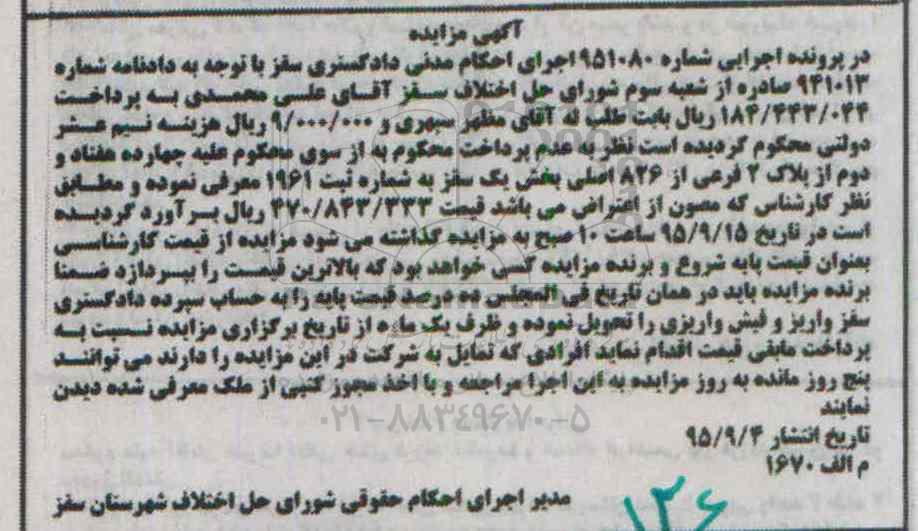 آگهی مزایده
در پرونده اجرایی شماره ۹۵۱۰۸۰ اجرای احکام مدنی دادگستری سقز با توجه به دادنامه شماره
۹۴۱۰۱۳ صادره از شعبه سوم شورای حل اختلاف سقز آقای علی محمدی به پرداخت
۱۸۴/۴۴۳/۰۴۴ ریال بابت طلب له آقای مظهر سپهری و ۹/۰۰۰/۰۰۰ ریال هزینه نیم عشر
دولتی محکوم گردیده است نظر به عدم پرداخت محکوم به از سوی محکوم علیه چهارده هفتاد و
دوم از پلاک ۲ فرعی از ۸۲۶ اصلی بخش یک سقز به شماره ثبت ۱۹۶۱ معرفی نموده و مطابق
نظر کارشناس که مصون از اعتراض می باشد قیمت ۲۷۰/۸۴۳/۳۳۳ ریال برآورد گردیده
است در تاریخ ۹۵/۹/۱۵ ساعت ۱۰ صبح به مزایده گذاشته می شود مزایده از قیمت کارشناسی
بعنوان قیمت پایه شروع و برنده مزایده کسی خواهد بود که بالاترین قیمت را بپردازد ضمنا
برنده مزایده باید در همان تاریخ فی المجلس ده درصد قیمت پایه را به حساب سپرده دادگستری
سقز واریز و فیش واریزی را تحویل نموده و ظرف یک ماه از تاریخ برگزاری مزایده نسبت به
پرداخت مابقی قیمت اقدام نماید افرادی که تمایل به شرکت در این مزایده را دارند می توانند
پنج روز مانده به روز مزایده به این اجرا مراجعه و با اخذ مجوز کتبی از ملک معرفی شده دیدن
نمایند
۰۲۱-۸۸۳۴۹۶۷۰-۵
تاریخ انتشار ۹۵/۹/۴
م الف ۱۶۷۰
مدیر اجرای احکام حقوقی شورای حل اختلاف شهرستان سقز
۱۳۶